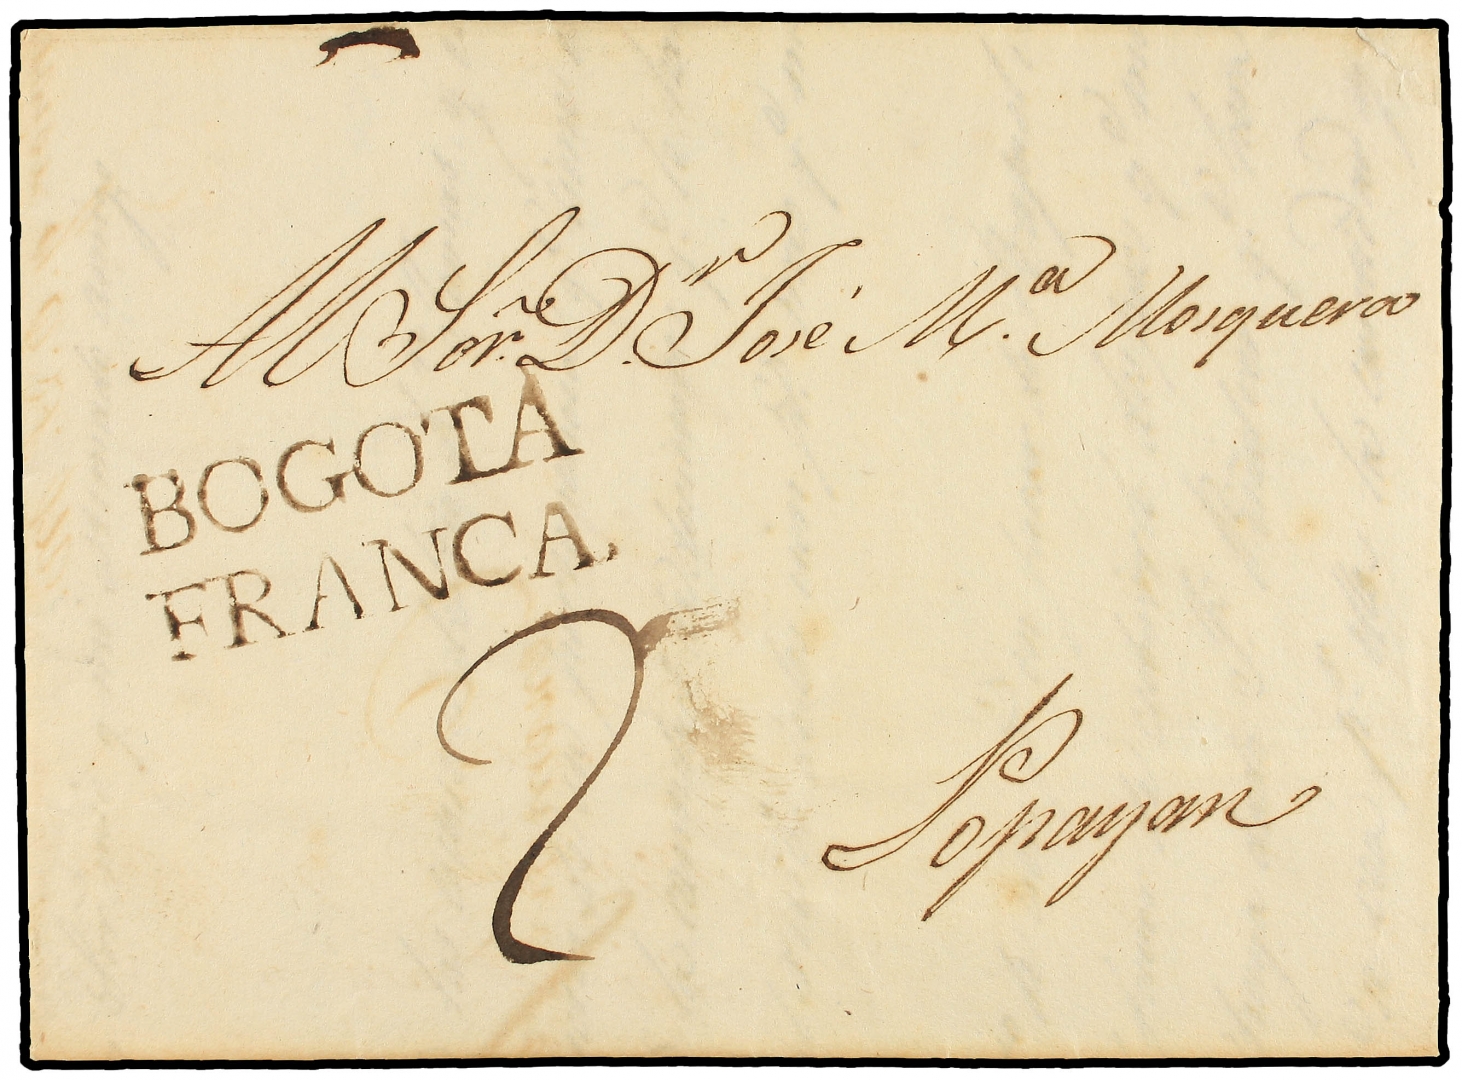 Al Sor. Dr. José Ma. Mosquera
BOGOTA
FRANCA.
2
Popayan